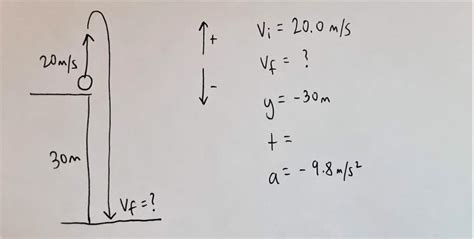 20m/s
30m
Vf=?
+
-
Vi = 20.0 m/s
Vf = ?
y = -30m
t =
a = -9.8 m/s²